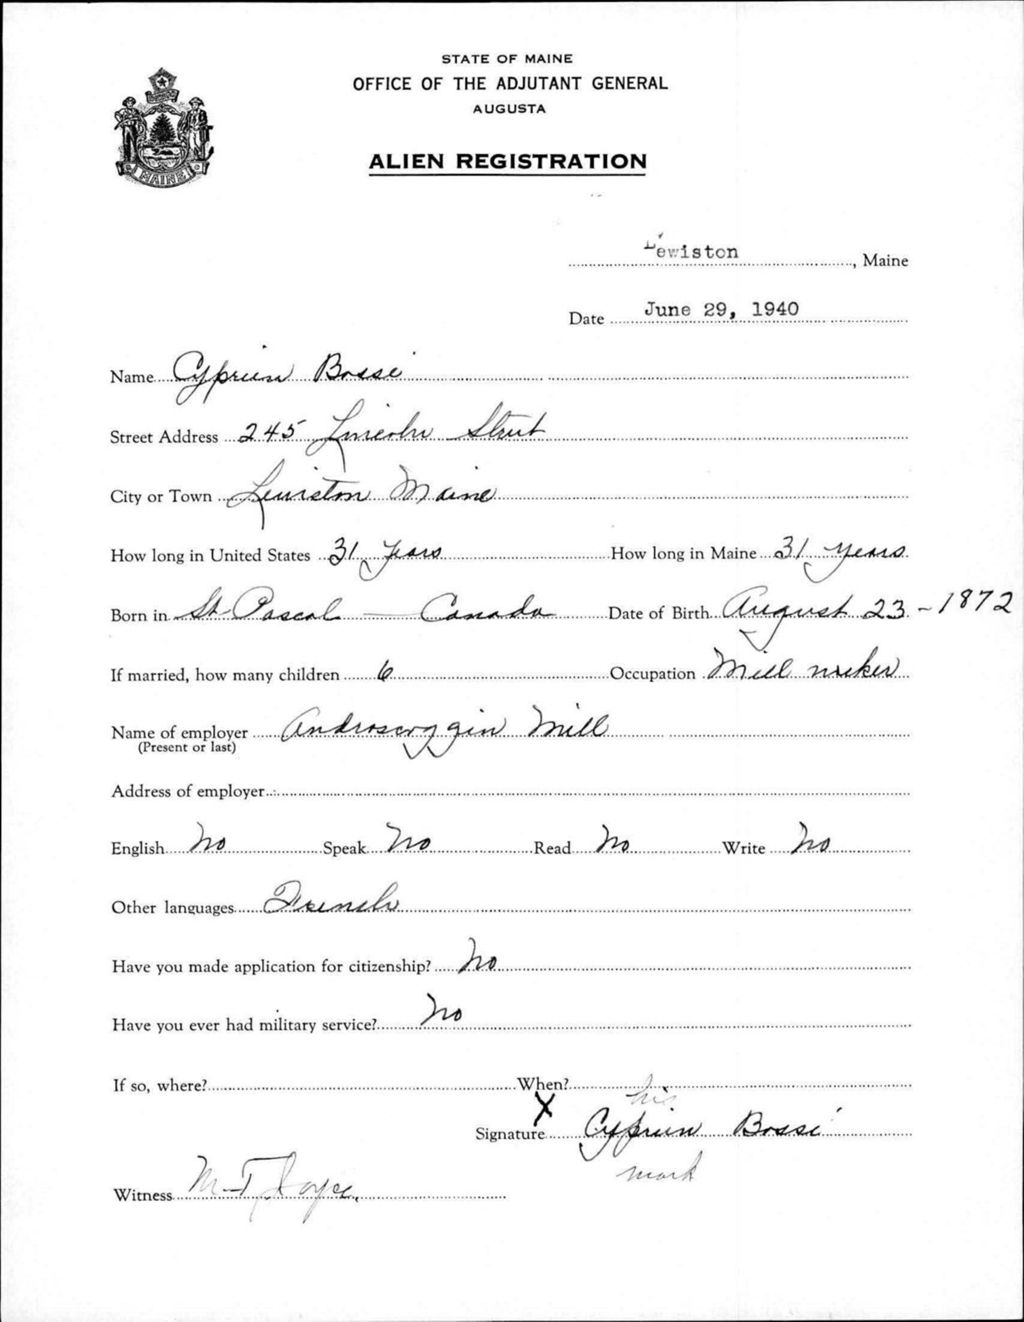 STATE OF MAINE
OFFICE OF THE ADJUTANT GENERAL
AUGUSTA
ALIEN REGISTRATION
MAINE
Lewiston, Maine
Date June 29, 1940
Name Cyprien Bossé
Street Address 245 Lincoln Street
City or Town Lewiston Maine
How long in United States 31 years How long in Maine 31 years
Born in St Pascal — Canada Date of Birth August 23 - 1872
If married, how many children 6 Occupation Mill worker
Name of employer Androscoggin Mill
(Present or last)
Address of employer
English No Speak No Read No Write No
Other languages French
Have you made application for citizenship? No
Have you ever had military service? No
If so, where? When?
his
Signature X Cyprien Bossé
mark
Witness M-T Joyce